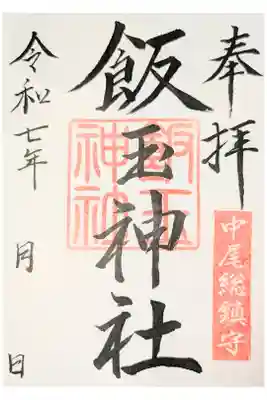 奉拝
中尾総鎮守
飯玉神社
飯玉
神社
令和七年 月 日